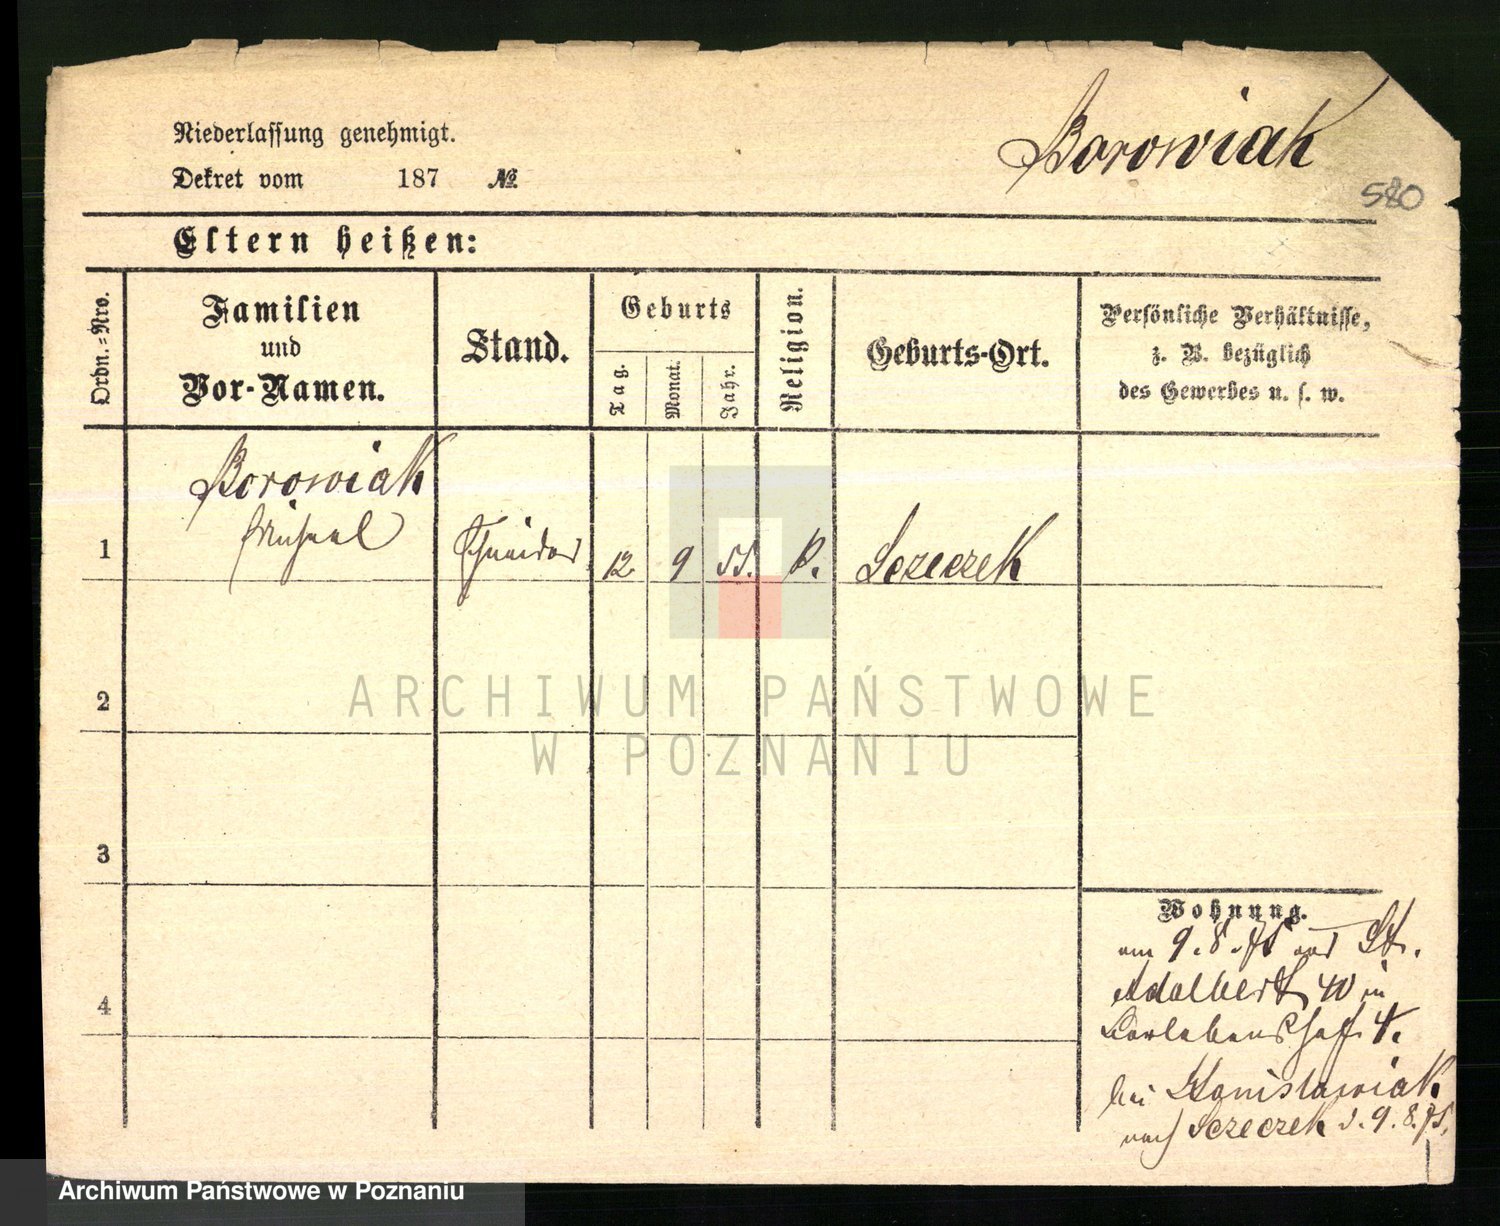 Niederlassung genehmigt.
Dekret vom 187 №
Borowiak
580
Eltern heißen:
Ordn.-Nro.
Familien
und
Vor-Namen.
Stand.
Geburts
Tag.
Monat.
Jahr.
Religion.
Geburts-Ort.
Persönliche Verhältnisse,
z. B. bezüglich
des Gewerbes u. s. w.
Borowiak
1 Michael Schneider 12 9 55. k. Sczeczek
2
3
4
Wohnung.
am 9. 8. 75 aus St.
Adalbert 40 in
bei Stanislawiak
nach Sczeczek d. 9. 8. 75.
ARCHIWUM PAŃSTWOWE
W POZNANIU
Archiwum Państwowe w Poznaniu